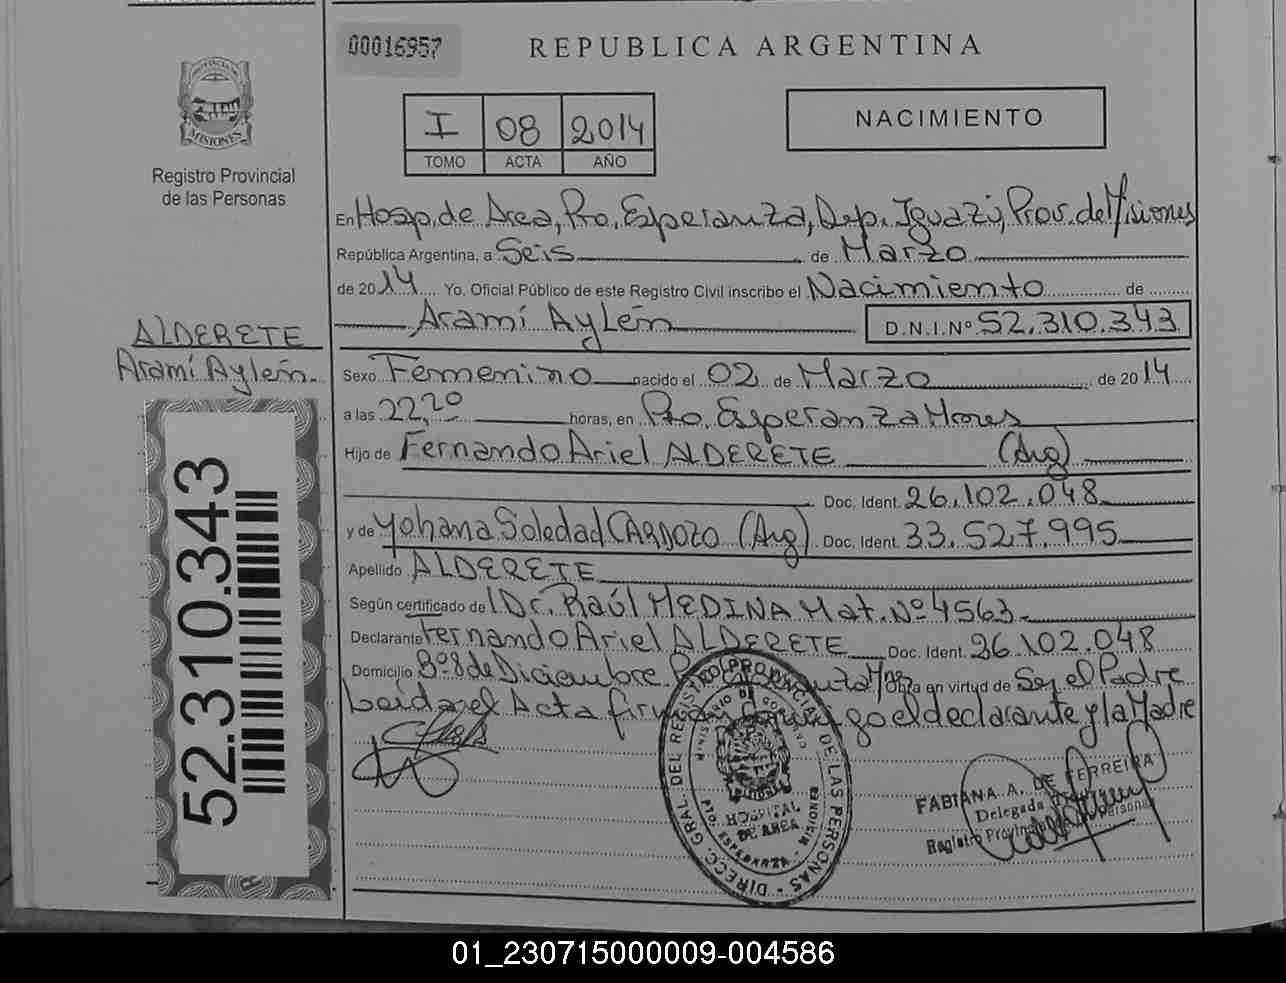 00016957
REPUBLICA ARGENTINA
PROVINCIA DE
MISIONES
Registro Provincial
de las Personas
I 08 2014
TOMO ACTA AÑO
NACIMIENTO
En Hosp. de Area, Pto. Esperanza, Dep. Iguazú, Prov. de Misiones
República Argentina, a Seis de Marzo
de 2014 Yo, Oficial Público de este Registro Civil inscribo el Nacimiento de
Aramí Aylén D.N.I.Nº 52.310.343
ALDERETE
Aramí Aylén.
Sexo Femenino nacido el 02 de Marzo de 2014
a las 22,20 horas, en Pto. Esperanza Mnes
Hijo de Fernando Ariel ALDERETE (Arg)
Doc. Ident. 26.102.048
y de Yohana Soledad CARDOZO (Arg) Doc. Ident. 33.527.995
Apellido ALDERETE
Según certificado de Dr. Raúl MEDINA Mat. Nº 4563
Declarante Fernando Ariel ALDERETE Doc. Ident. 26.102.048
Domicilio Bº 8 de Diciembre Mnes Obra en virtud de Ser el Padre
Leida el Acta el declarante y la Madre
52.310.343
DIRECC. GRAL. DEL REGISTRO PROVINCIAL DE LAS PERSONAS
MINISTERIO DE GOBIERNO
HOSPITAL
DE AREA
PTO. ESPERANZA - MISIONES
FABIANA A. DE FERREIRA
Delegada
Registro Provincial Personas
01_230715000009-004586